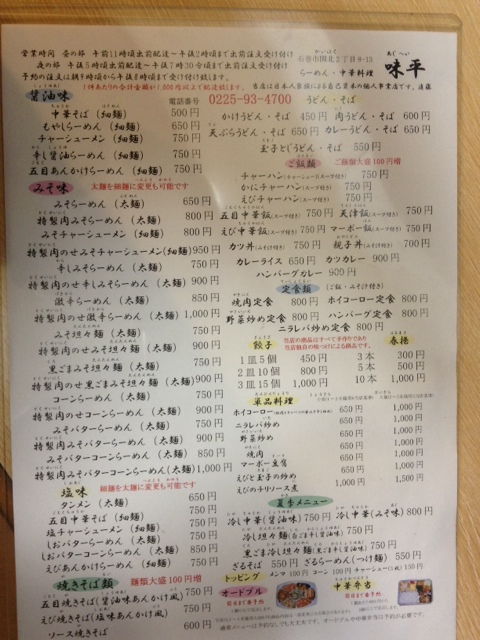 営業時間 昼の部 午前11時頃出前配達〜午後2時まで出前注文受け付け
夜の部 午後5時頃出前配達〜午後7時30分頃まで出前注文受け付け
予約の注文は朝9時から午後8時まで受け付け致します。
1件あたりの合計金額が1,000円以上で配達致します。
石巻市開北2丁目8-13
らーめん・中華料理 味平
醤油味
電話番号 0225-93-4700
中華そば(細麺) 500円
もやしらーめん(細麺) 650円
チャーシューメン(細麺) 750円
辛し醤油らーめん(細麺) 750円
五目あんかけらーめん(細麺) 750円
みそ味 太麺を細麺に変更も可能です
みそらーめん(太麺) 650円
特製肉みそらーめん(太麺) 800円
みそチャーシューメン(細麺) 800円
特製肉のせみそチャーシューメン(細麺) 950円
辛しみそらーめん(太麺) 750円
特製肉のせ辛しみそらーめん(太麺) 900円
激辛らーめん(太麺) 850円
特製肉のせ激辛らーめん(太麺) 1,000円
みそ坦々麺(太麺) 750円
特製肉のせみそ坦々麺(太麺) 900円
黒ごまみそ坦々麺(太麺) 750円
特製肉のせ黒ごまみそ坦々麺(太麺) 900円
コーンらーめん(太麺) 750円
特製肉のせコーンらーめん(太麺) 900円
みそバターらーめん(太麺) 750円
特製肉みそバターらーめん(太麺) 900円
みそバターコーンらーめん(太麺) 850円
特製肉みそバターコーンらーめん(太麺) 1,000円
塩味 細麺を太麺に変更も可能です
タンメン(太麺) 650円
五目中華そば(細麺) 750円
塩チャーシューメン(細麺) 750円
しおバターらーめん(細麺) 750円
しおバターコーンらーめん(細麺) 850円
えびあんかけらーめん(細麺) 750円
焼きそば類 麺類大盛100円増
五目焼きそば(醤油味あんかけ風) 750円
五目焼きそば(塩味あんかけ風) 750円
ソース焼きそば 600円
うどん・そば
かけうどん・そば 450円 肉うどん・そば 600円
天ぷらうどん・そば 650円 カレーうどん・そば 650円
玉子とじうどん・そば 550円
ご飯類 ご飯類大盛100円増
チャーハン 750円
かにチャーハン(スープ付き) 750円
えびチャーハン(スープ付き) 750円
五目中華飯(スープ付き) 750円 天津飯(スープ付き) 750円
えび中華飯(スープ付き) 750円 マーボー飯(スープ付き) 750円
カツ丼(みそ汁付き) 750円 親子丼(みそ汁付き) 700円
カレーライス 650円 カツカレー 900円
ハンバーグカレー 900円
定食類 (ご飯・みそ汁付き)
焼肉定食 800円 ホイコーロー定食 800円
野菜炒め定食 800円 ハンバーグ定食 800円
ニラレバ炒め定食 800円
餃子
1皿5個 450円
2皿10個 800円
3皿15個 1,000円
当店の商品はすべて手作りであり
当店独自の味つけによる商品です。
春捲
3本 300円
5本 500円
10本 1,000円
単品料理
ホイコーロー 650円 1,000円
ニラレバ炒め 650円 1,000円
野菜炒め 650円 1,000円
焼肉 650円 1,000円
マーボー豆腐 650円 1,000円
えびと玉子の炒め
えびのチリソース煮 1,500円
夏季メニュー
冷し中華(醤油味) 750円 冷し中華(みそ味) 800円
冷し坦々麺(ごま辛し醤油味) 750円
黒ごま冷し坦々麺 750円
ざるそば 550円 ざるらーめん(つけ麺) 550円
トッピング メンマ 100円 コーン 100円
オードブル 前日まで要予約
中華弁当 前日まで要予約